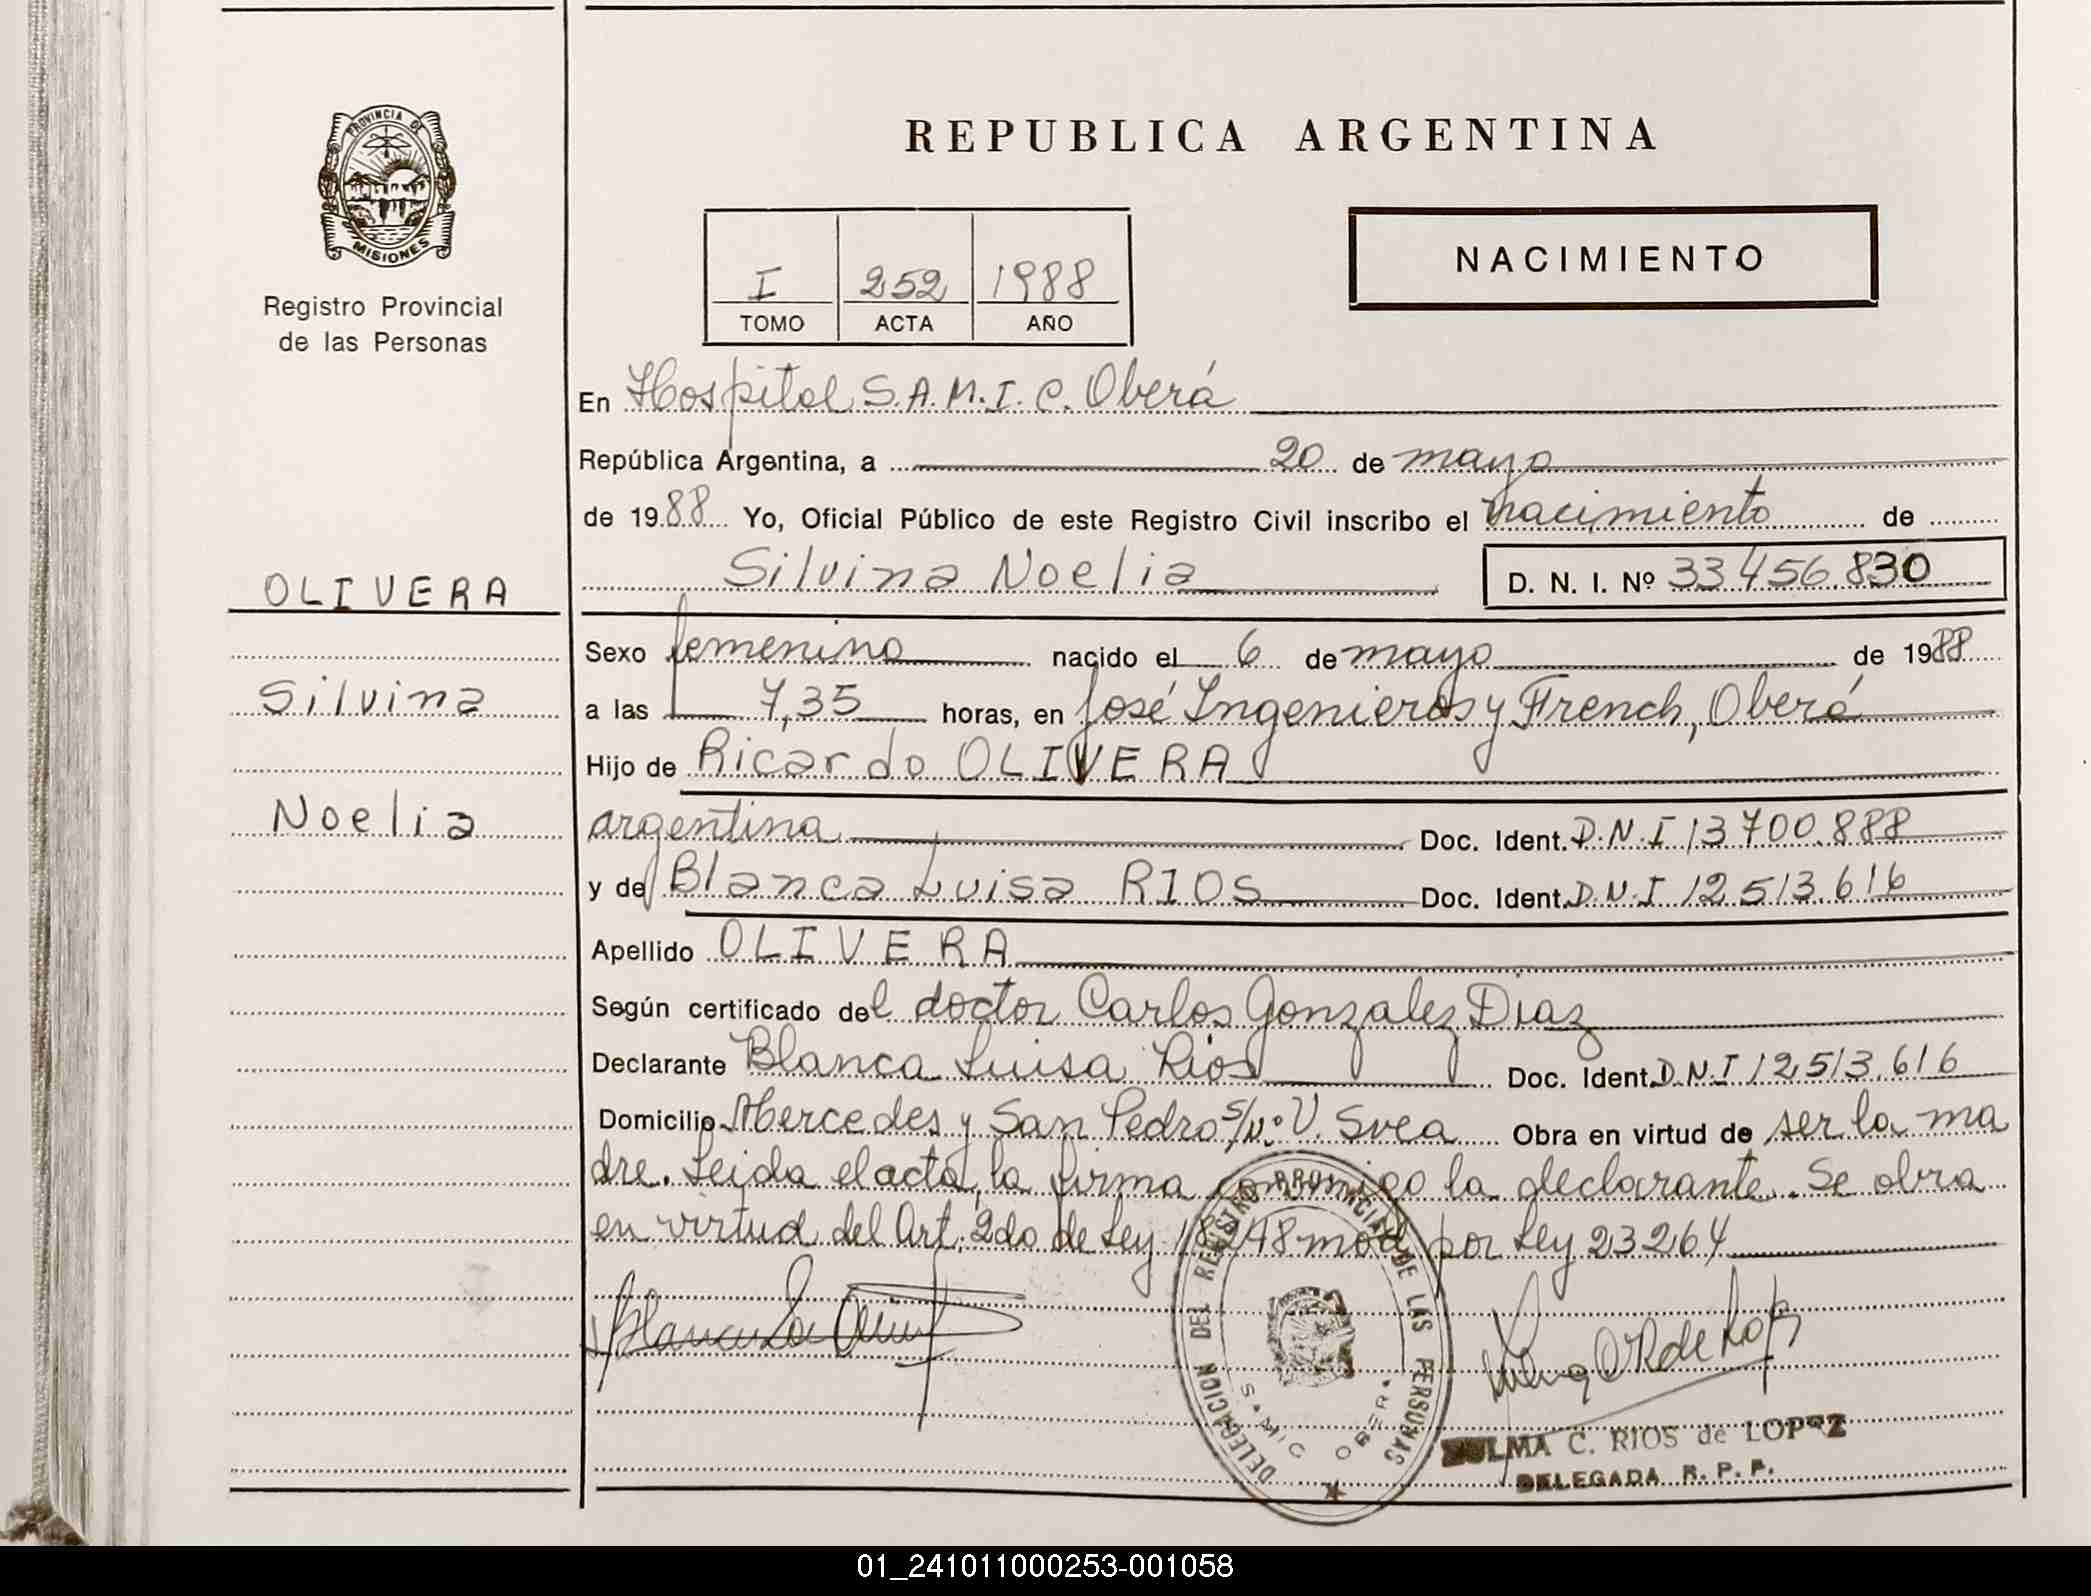 PROVINCIA DE
MISIONES
Registro Provincial
de las Personas
OLIVERA
Silvina
Noelia
REPUBLICA ARGENTINA
I 252 1988
TOMO ACTA AÑO
NACIMIENTO
En Hospital S.A.M.I.C. Oberá
República Argentina, a 20 de mayo
de 1988 Yo, Oficial Público de este Registro Civil inscribo el nacimiento de
Silvina Noelia D. N. I. Nº 33.456.830
Sexo femenino nacido el 6 de mayo de 1988
a las 7,35 horas, en José Ingenieros y French, Oberá
Hijo de Ricardo OLIVERA
argentina Doc. Ident. D.N.I 13.700.888
y de Blanca Luisa RIOS Doc. Ident. D.N.I 12.513.616
Apellido OLIVERA
Según certificado del doctor Carlos Gonzalez Diaz
Declarante Blanca Luisa Rios Doc. Ident. D.N.I 12.513.616
Domicilio Mercedes y San Pedro s/Nº V. Svea Obra en virtud de ser la ma
dre. Leida el acta, la firma conmigo la declarante. Se obra
en virtud del Art. 2do de Ley 18248 mod. por Ley 23264
DELEGACION DEL REGISTRO PROVINCIAL DE LAS PERSONAS
SAMIC OBERA
C. RIOS de LOPEZ
DELEGADA R. P. P.
01_241011000253-001058